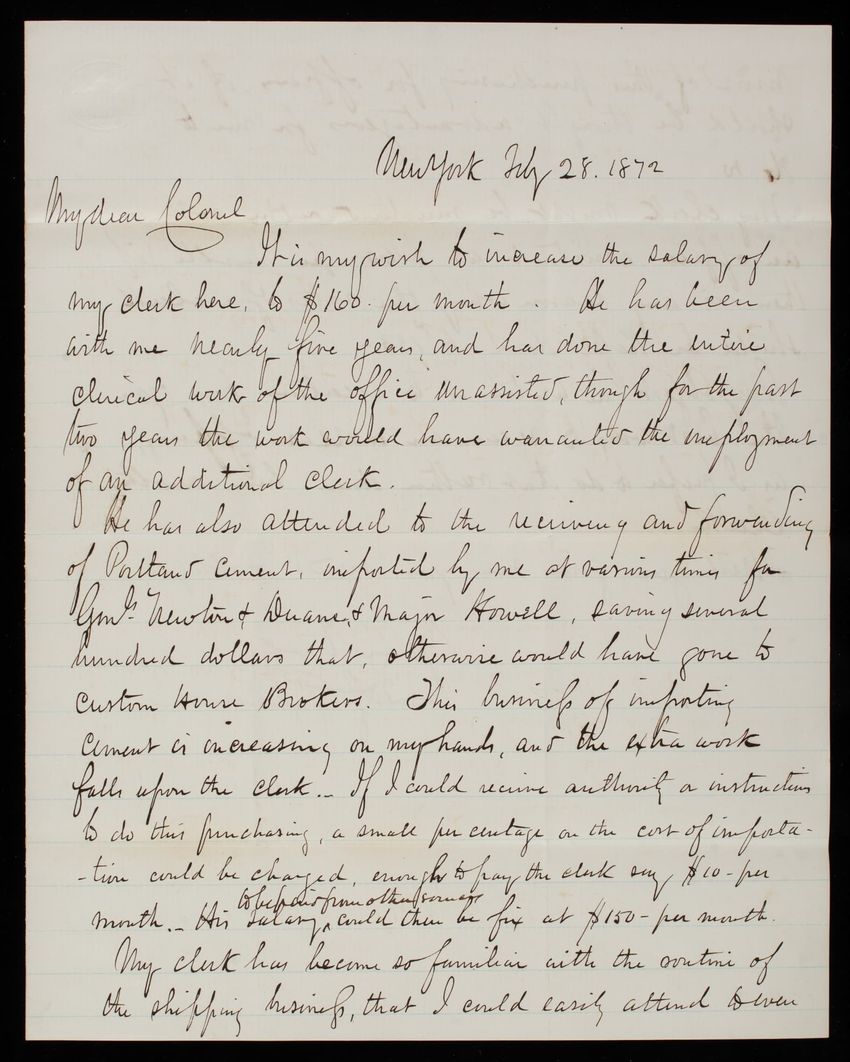 New York Feby 28. 1872
My dear Colonel
It is my wish to increase the salary of
my clerk here, to $160. per month. He has been
with me nearly five years, and has done the entire
clerical work of the office unassisted, though for the past
two years the work would have warranted the employment
of an additional clerk.
He has also attended to the receiving and forwarding
of Portland cement, imported by me at various times for
Genls. Newton & Duane, & Major Howell, saving several
hundred dollars that, otherwise would have gone to
Custom House Brokers. This business of importing
cement is increasing on my hands, and the extra work
falls upon the clerk._ If I could receive authority or instructions
to do this purchasing, a small per centage on the cost of importa-
-tion could be charged, enough to pay the clerk say $10 - per
to be paid from other sources
month._ His salary, could then be fix at $150 - per month.
My clerk has become so familiar with the routine of
the shipping business, that I could easily attend to even